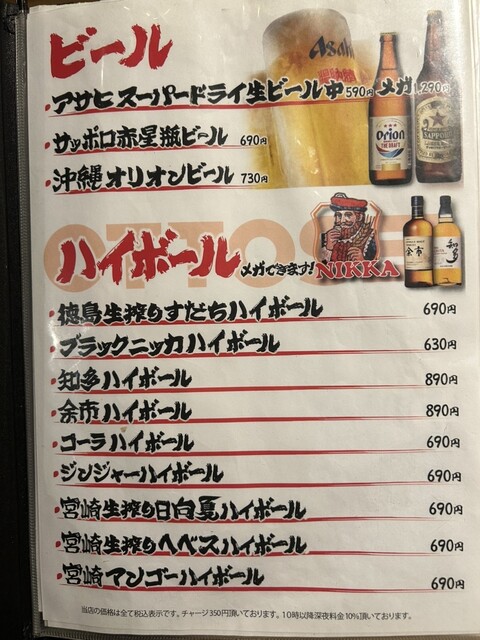 ビール
Asahi
・アサヒスーパードライ生ビール中590円 メガ1,290円
・サッポロ赤星瓶ビール 690円
・沖縄オリオンビール 730円
Orion
THE DRAFT
SAPPORO
OTTOSE
ハイボール メガできます!
NIKKA
余市
知多
・徳島生搾りすだちハイボール 690円
・ブラックニッカハイボール 630円
・知多ハイボール 890円
・余市ハイボール 890円
・コーラハイボール 690円
・ジンジャーハイボール 690円
・宮崎生搾り日向夏ハイボール 690円
・宮崎生搾りヘベスハイボール 690円
・宮崎マンゴーハイボール 690円
当店の価格は全て税込表示です。チャージ350円頂いております。10時以降深夜料金10%頂いております。